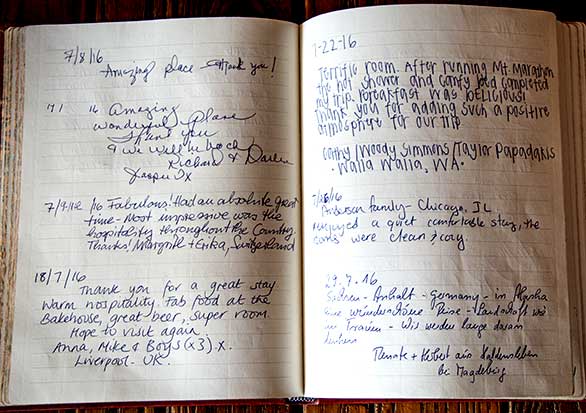 7/8/16
Amazing place Thank you!
16 Amazing
wonderful place
Thank you
& we will be back
Richard &
7/9 /16 Fabulous! Had an absolute great
time - Most impressive was the
hospitality throughout the Country.
Thanks! Margrit + Erika, Switzerland
18/7/16
Thank you for a great stay
Warm hospitality. Fab food at the
Bakehouse, great beer, super room.
Hope to visit again.
Anna, Mike & Boys (x3) x.
Liverpool. UK.
7-22-16
Terrific room. After running Mt. Marathon
the hot shower and comfy bed completed
my trip. Breakfast was delicious!
Thank you for adding such a positive
atmosphere for our trip
Cathy/Woody Simmons/Taylor Papadakis
- Walla Walla, WA.
/16
Anderson family - Chicago, IL
enjoyed a quiet comfortable stay, the
were clean & cozy.
29.7.16
Sachsen - Anhalt - Germany - in Alaska
eine wunderschöne Reise - Landschaft wie
im Traum - Wir werden lange daran
denken
Renate + aus Haldensleben
bei Magdeburg